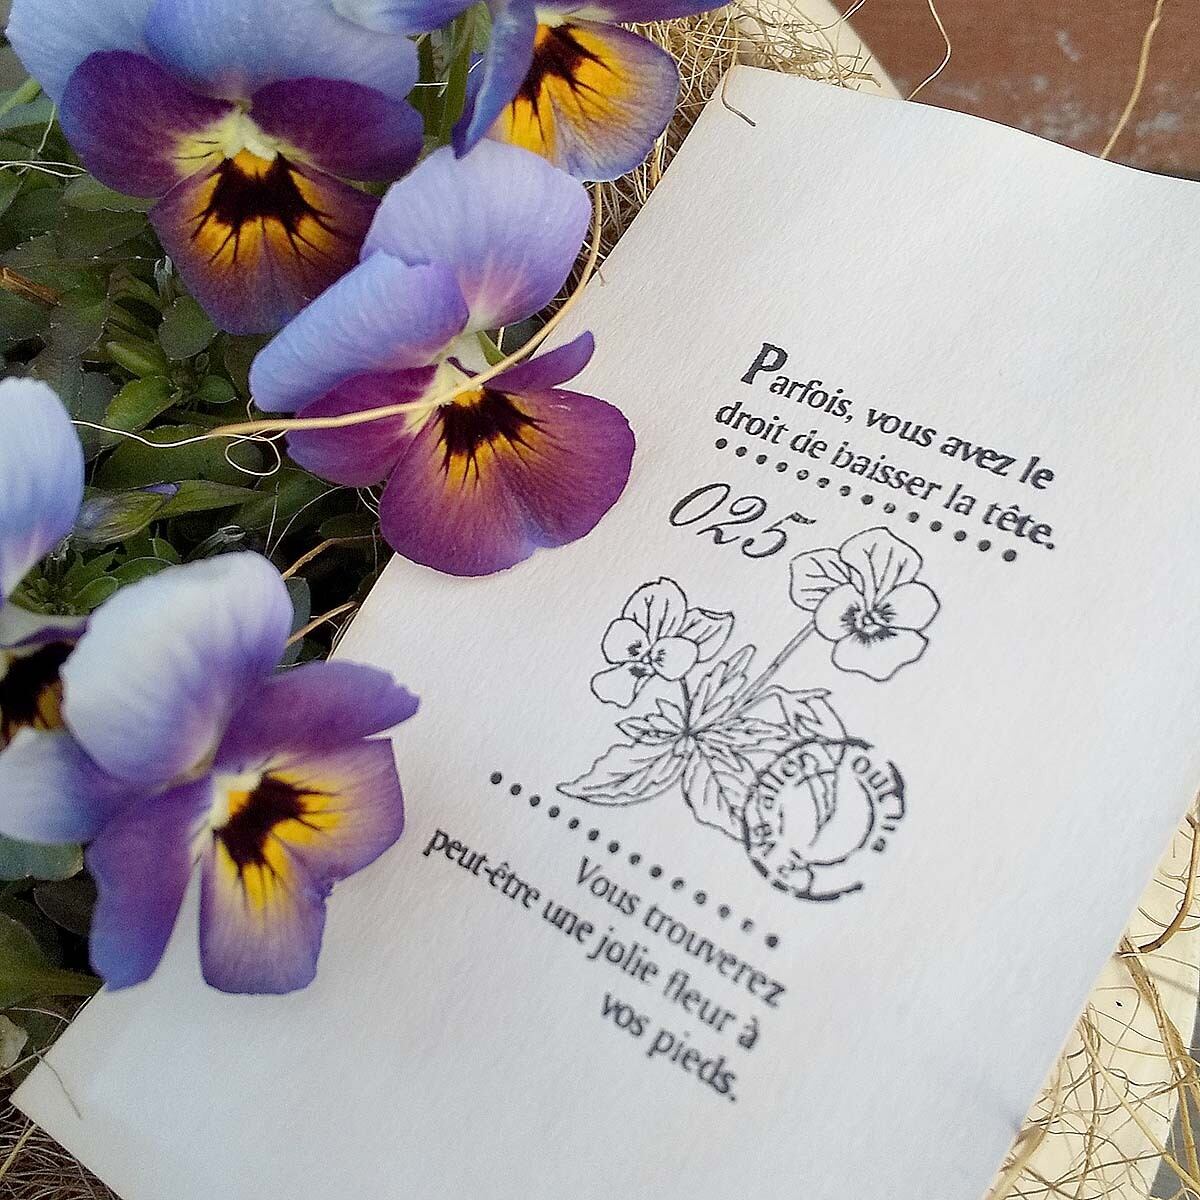 Parfois, vous avez le
droit de baisser la tête.
025
Vous trouverez
peut-être une jolie fleur à
vos pieds.